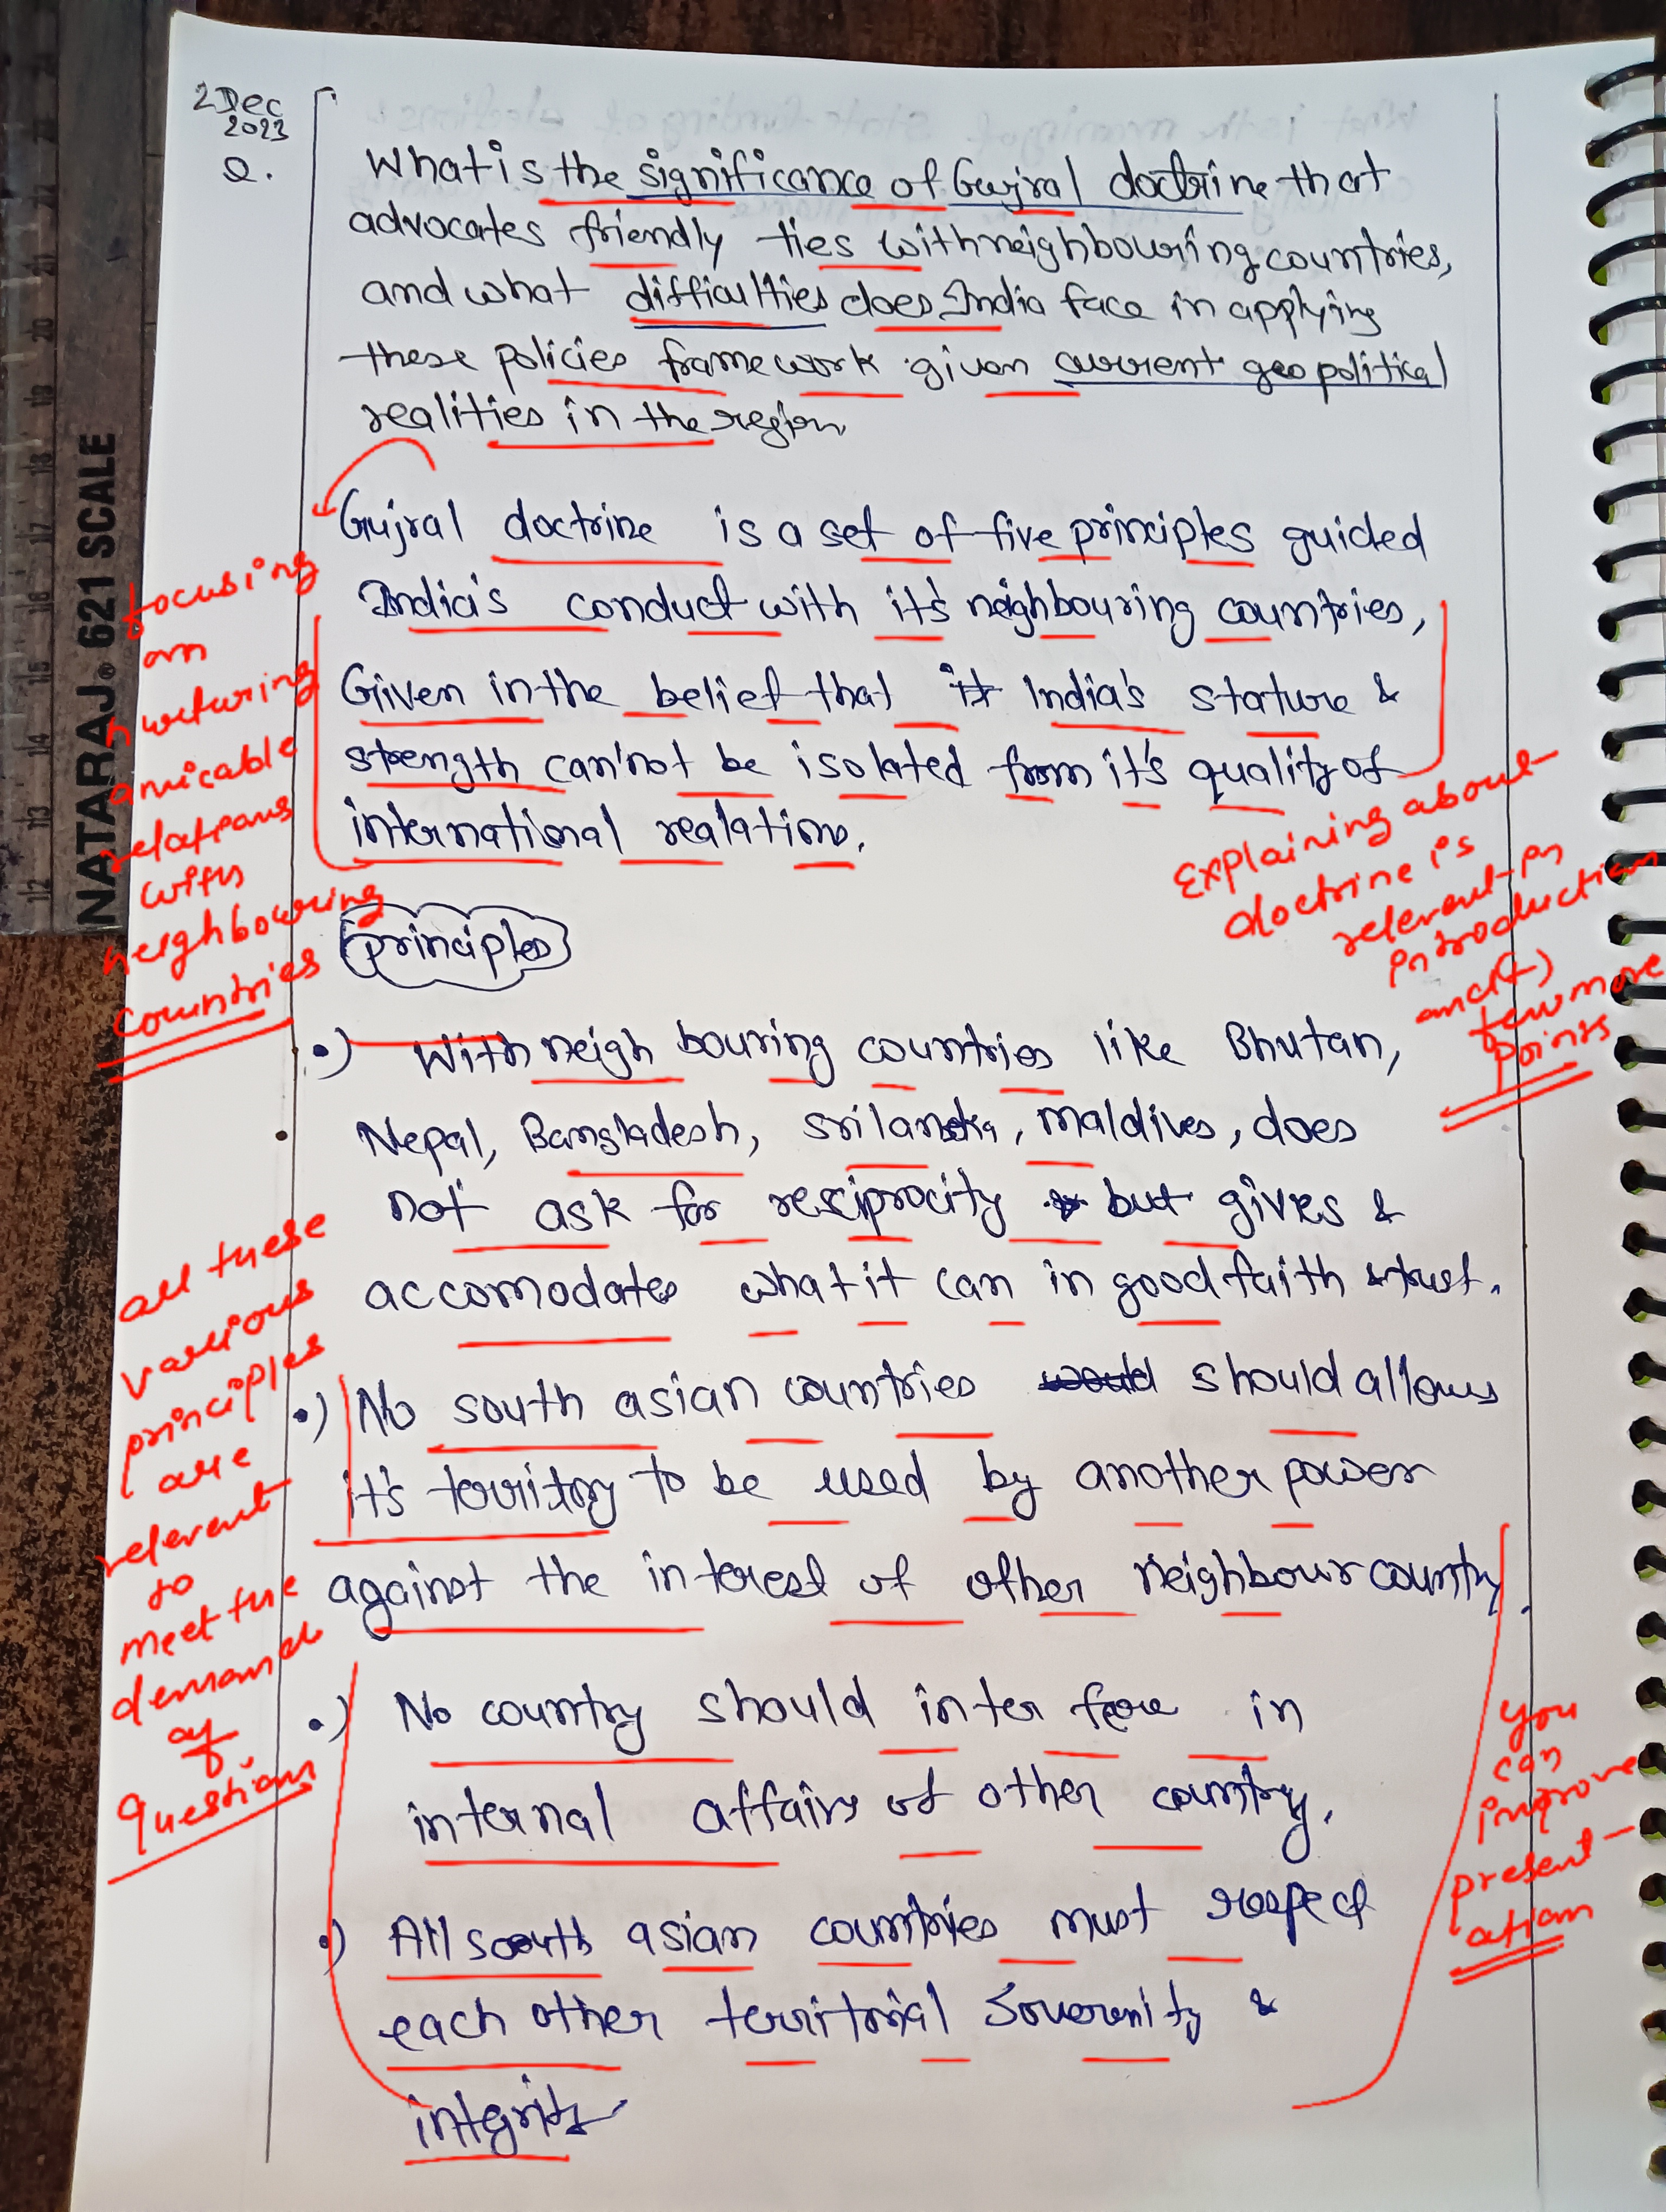 2 Dec
2023
Q.
What is the significance of Gujral doctrine that
advocates friendly ties with neighbouring countries,
and what difficulties does India face in applying
these policies framework given current geopolitical
realities in the region
Gujral doctrine is a set of five principles guided
India's conduct with it's neighbouring countries,
Given in the belief that India's stature &
strength can'not be isolated from it's quality of
international realations.
principles
•) With neighbouring countries like Bhutan,
Nepal, Bangladesh, srilanka, maldives, does
not ask for resciprocity but gives &
accomodates what it can in good faith & trust.
•) No south asian countries would should allows
it's territory to be used by another power
against the interest of other neighbour country.
•) No country should interfere in
internal affairs of other country.
•) All south asian countries must respect
each other territorial Soverenity &
integrity
focusing
on
nurturing
amicable
relations
with
neighbouring
countries
Explaining about
doctrine is
relevant in
introduction
and (+)
few more
points
all these
various
principles
are
relevant
to
meet the
demand
of
question
you
can
improve
present-
ation
NATARAJ® 621 SCALE
12
13
14
15
16
17
18
19
20
21